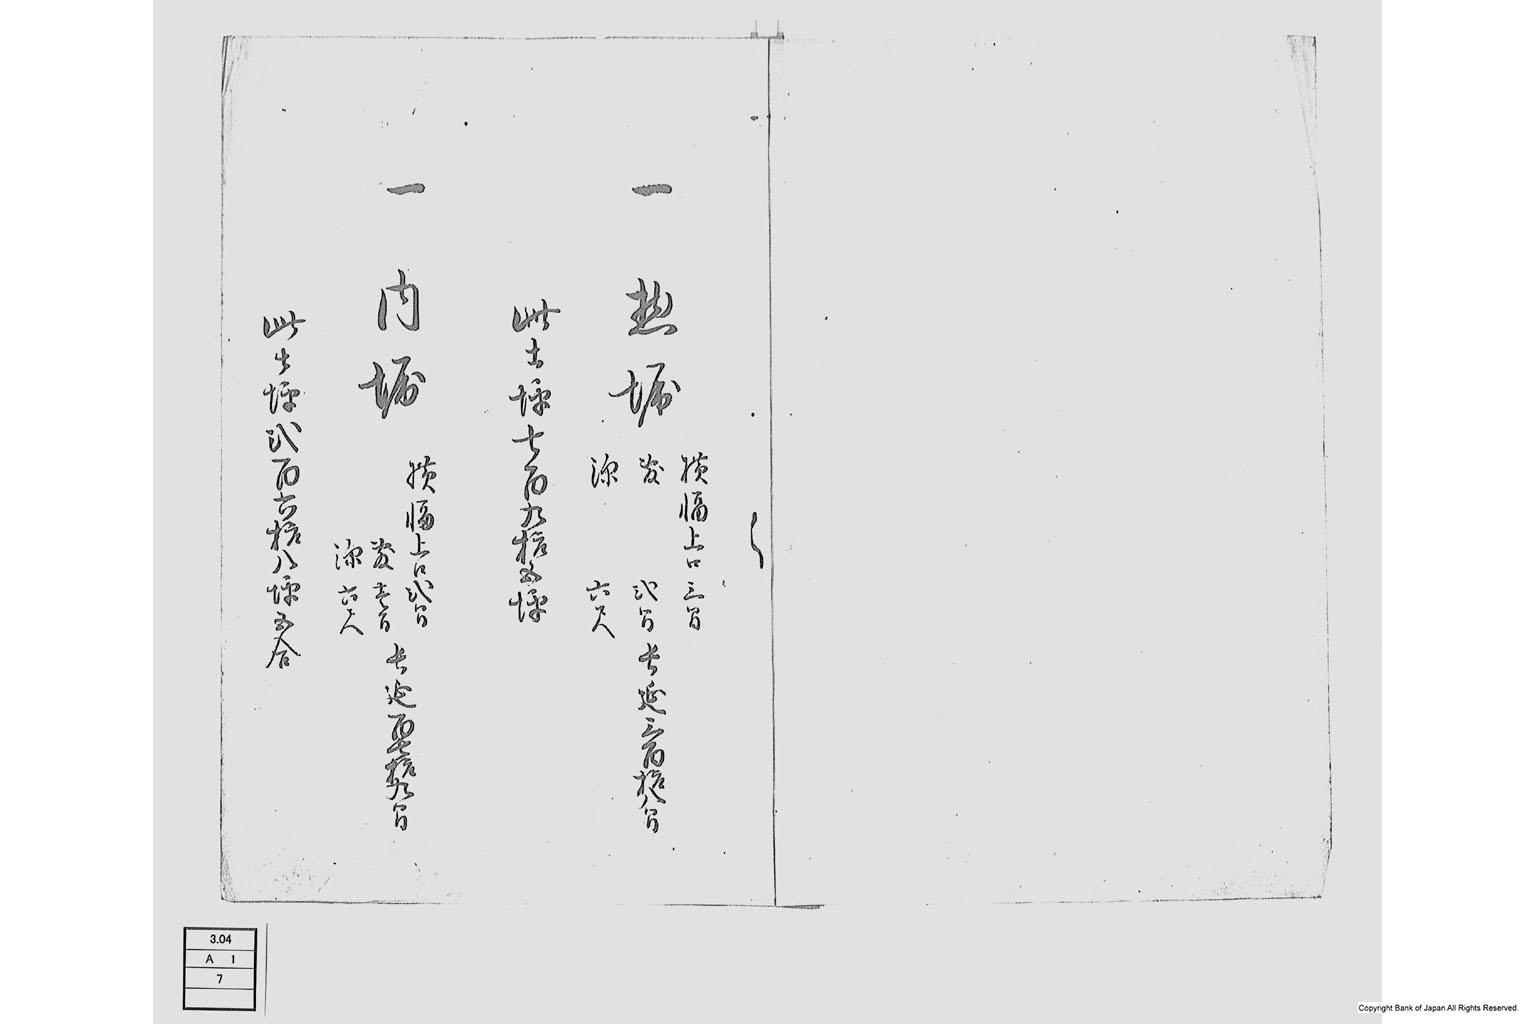 一 惣堀
横幅上口三間
敷 弐間
深 六尺
長延三百拾八間
此土坪七百九拾五坪
一 内堀
横幅上口弐間
敷壱間
深六尺
長延百七拾九間
此土坪弐百六拾八坪五合
3.04
A 1
7
Copyright Bank of Japan All Rights Reserved.